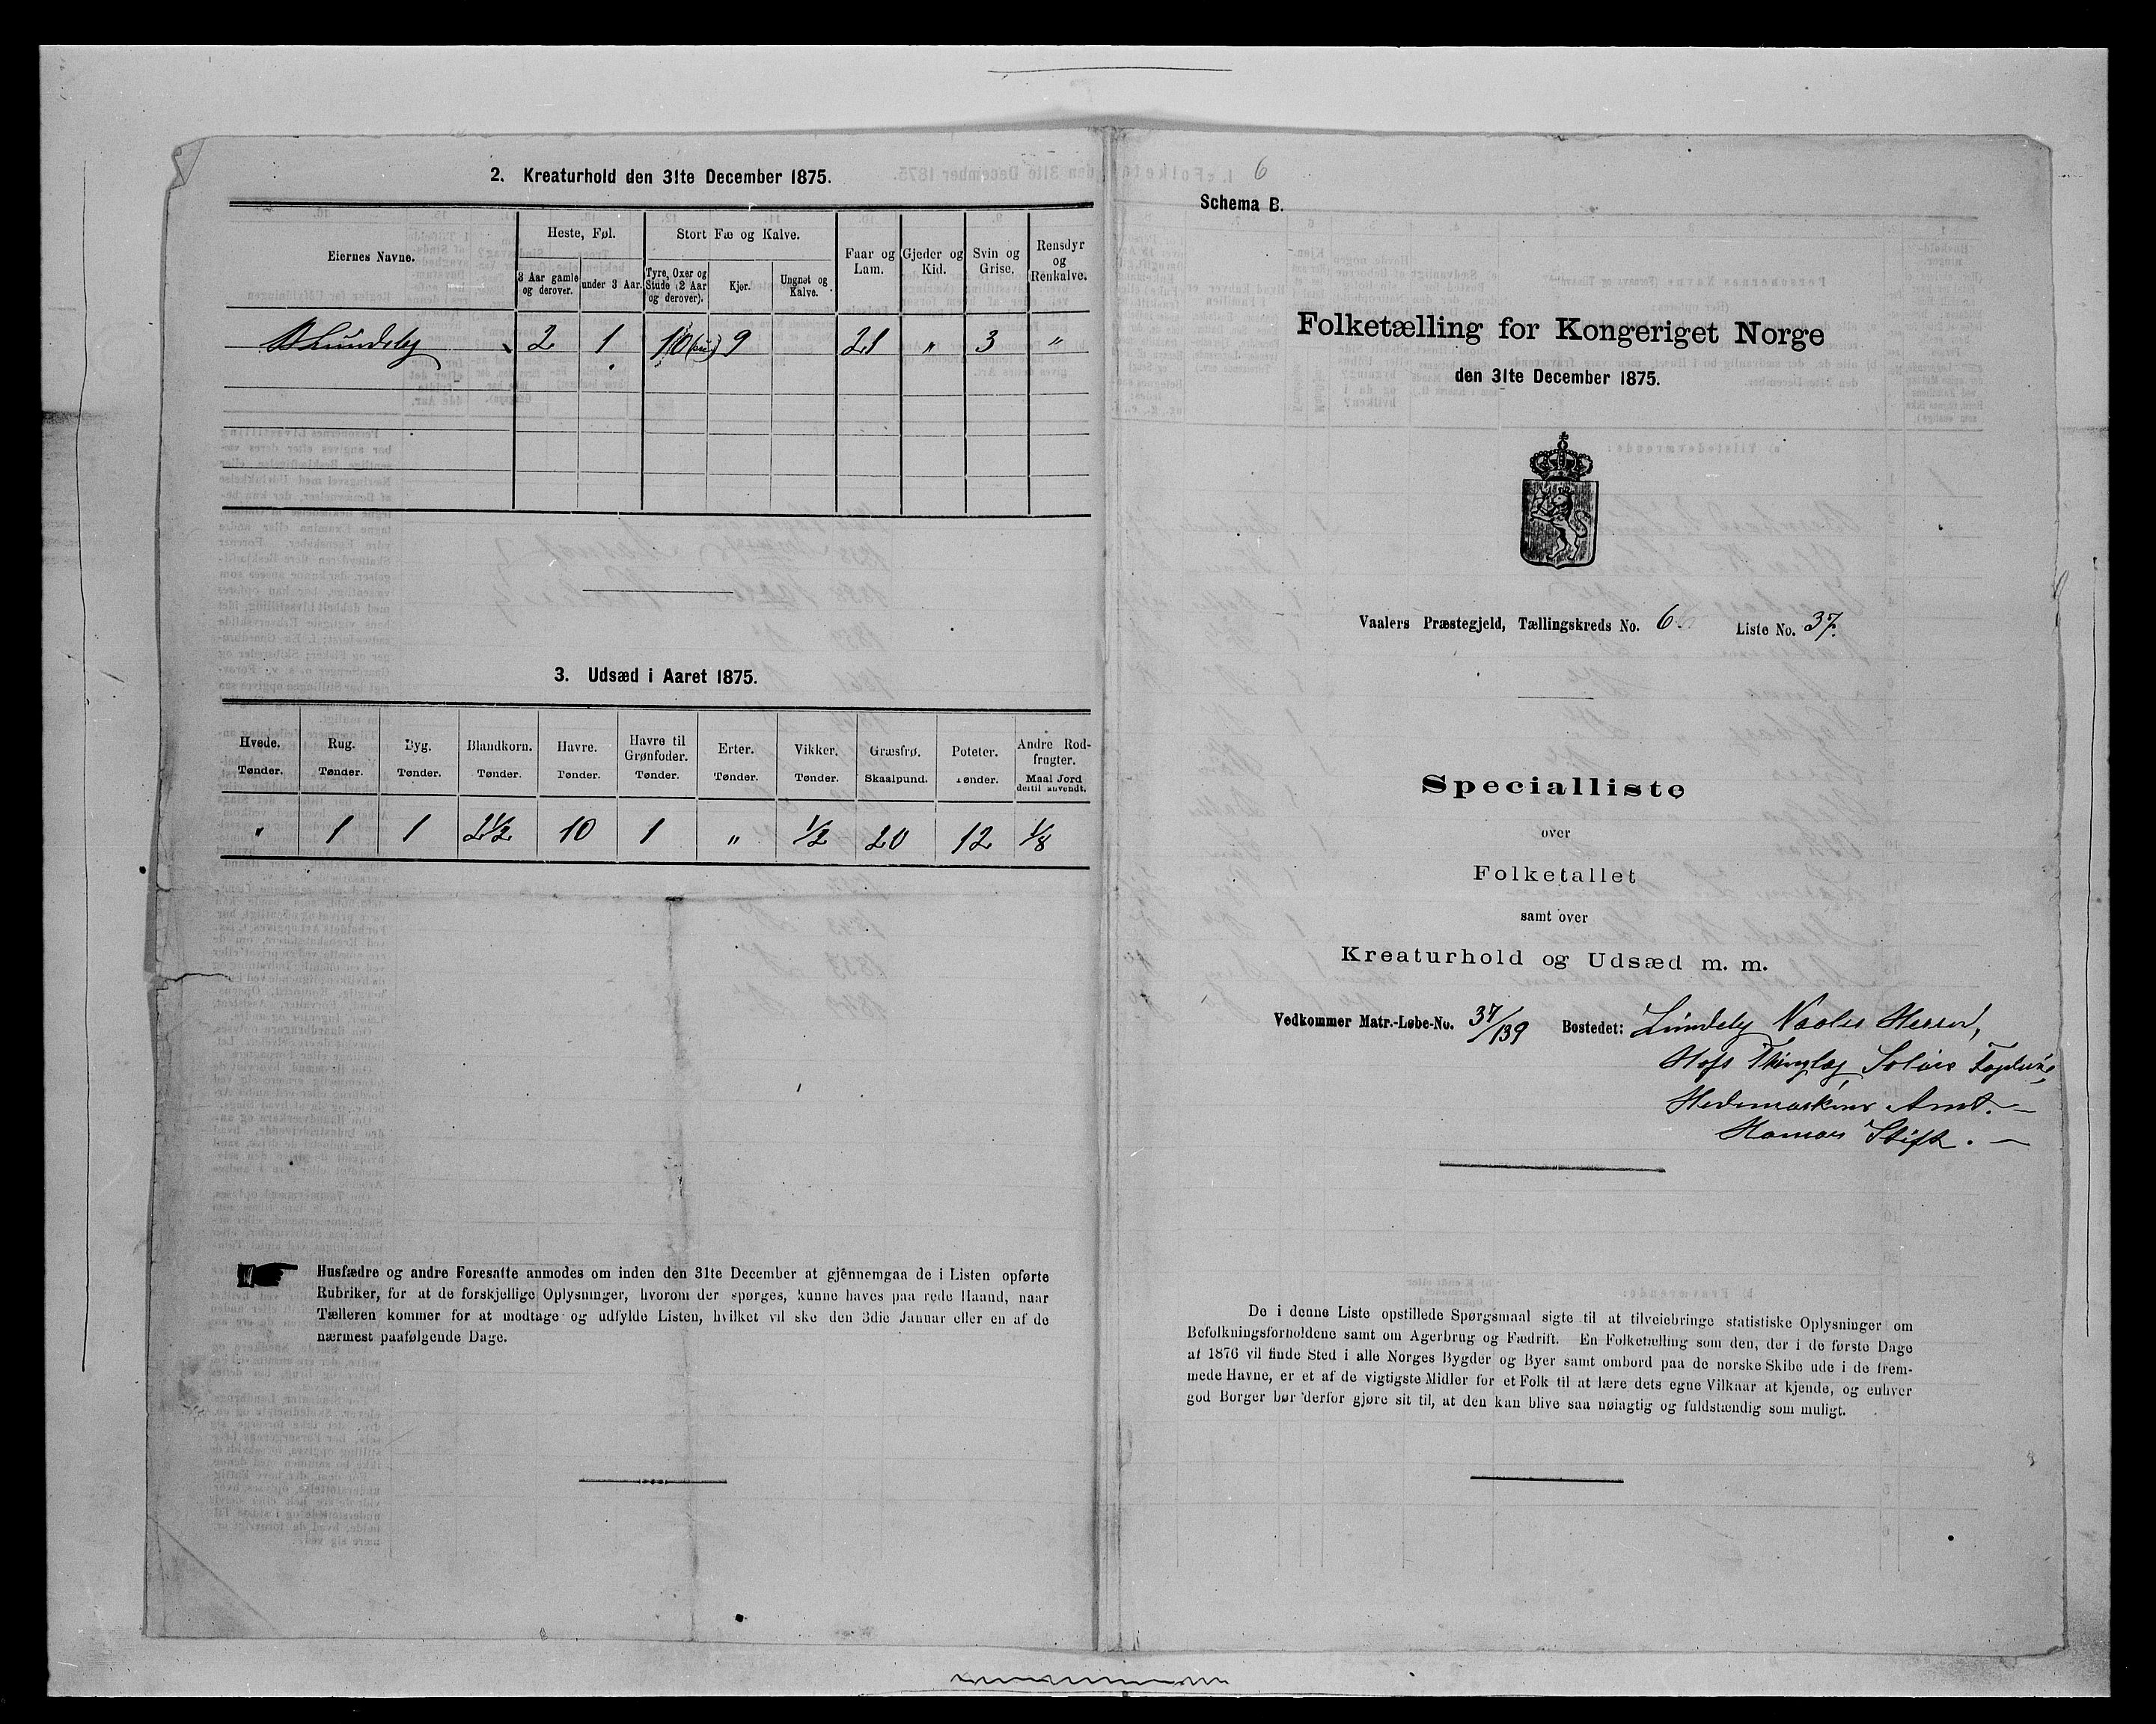 2. Kreaturhold den 31te December 1875.
Eiernes Navne.
Heste, Føl.
Stort Fæ og Kalve.
3 Aar gamle og derover.
under 3 Aar.
Tyre, Oxer og Stude (2 Aar og derover).
Kjør.
Ungnøt og Kalve.
Faar og Lam.
Gjeder og Kid.
Svin og Grise.
Rensdyr og Renkalve.
B Lundeby 2 1 9 21 " 3 "
3. Udsæd i Aaret 1875.
Hvede. Rug. Byg. Blandkorn. Havre. Havre til Grønfoder. Erter. Vikker. Græsfrø. Poteter. Andre Rodfrugter.
Tønder. Tønder. Tønder. Tønder. Tønder. Tønder. Tønder. Tønder. Skaalpund. Tønder. Maal Jord dertil anvendt.
" 1 1 2 1/2 10 1 " 1/2 20 12 1/8
Husfædre og andre Foresatte anmodes om inden den 31te December at gjennemgaa de i Listen opførte
Rubriker, for at de forskjellige Oplysninger, hvorom der spørges, kunne haves paa rede Haand, naar
Tælleren kommer for at modtage og udfylde Listen, hvilket vil ske den 3die Januar eller en af de
nærmest paafølgende Dage.
6
Schema B.
Folketælling for Kongeriget Norge
den 31te December 1875.
Vaalers Præstegjeld, Tællingskreds No. 6. Liste No. 37.
Specialliste
over
Folketallet
samt over
Kreaturhold og Udsæd m. m.
Vedkommer Matr.-Løbe-No. 37/139 Bostedet: Lundeby Vaaler Herred,
Hofs Thinglag, Solørs Fogderie,
Hedemarkens Amt. —
Hamar Stift. —
De i denne Liste opstillede Spørgsmaal sigte til at tilveiebringe statistiske Oplysninger om
Befolkningsforholdene samt om Agerbrug og Fædrift. En Folketælling som den, der i de første Dage
af 1876 vil finde Sted i alle Norges Bygder og Byer samt ombord paa de norske Skibe ude i de frem-
mede Havne, er et af de vigtigste Midler for et Folk til at lære dets egne Vilkaar at kjende, og enhver
god Borger bør derfor gjøre sit til, at den kan blive saa nøiagtig og fuldstændig som muligt.